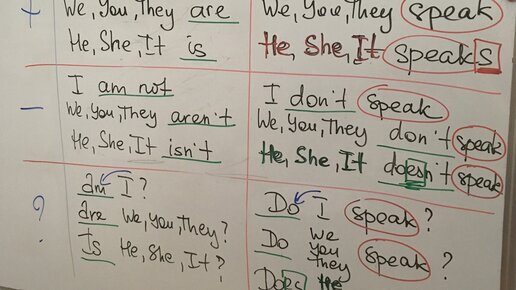 + We, You, They are We, You, They speak
He, She, It is He, She, It speaks
I am not I don't speak
– We, You, They aren't We, You, They don't speak
He, She, It isn't He, She, It doesn't speak
am I? Do I speak?
? are We, you, They? Do We you They speak?
Is He, She, It? Does He